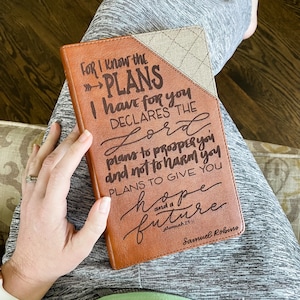 For I know the
PLANS
I have for you
DECLARES THE
Lord
plans to prosper you
and not to harm you
PLANS TO GIVE YOU
hope
and a
future
Samuel Robins